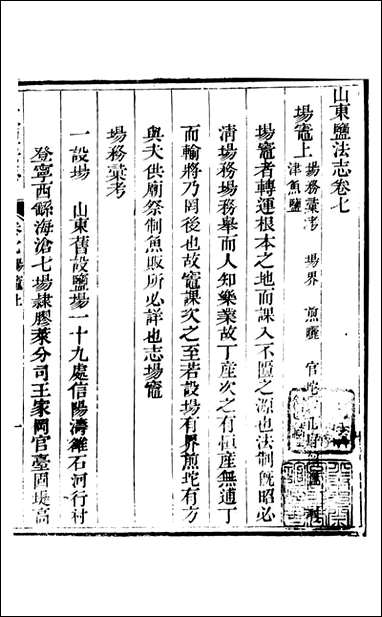 山東鹽法志卷七
場竈上
場務彙考 場界 煎曬 官坨
津魚鹽
場竈者轉運根本之地而課入不匱之源也法制旣昭必
淸場務場務舉而人知樂業故丁產次之有恒產無逋丁
而輸將乃罔後也故竈課次之至若設場有界煎坨有方
與夫供廟祭制魚販所必詳也志場竈
場務彙考
一設場 山東舊設鹽場一十九處信陽濤雒石河行村
登寧西繇海滄七場隷膠萊分司王家岡官臺固堤高
卷七場竈上
一